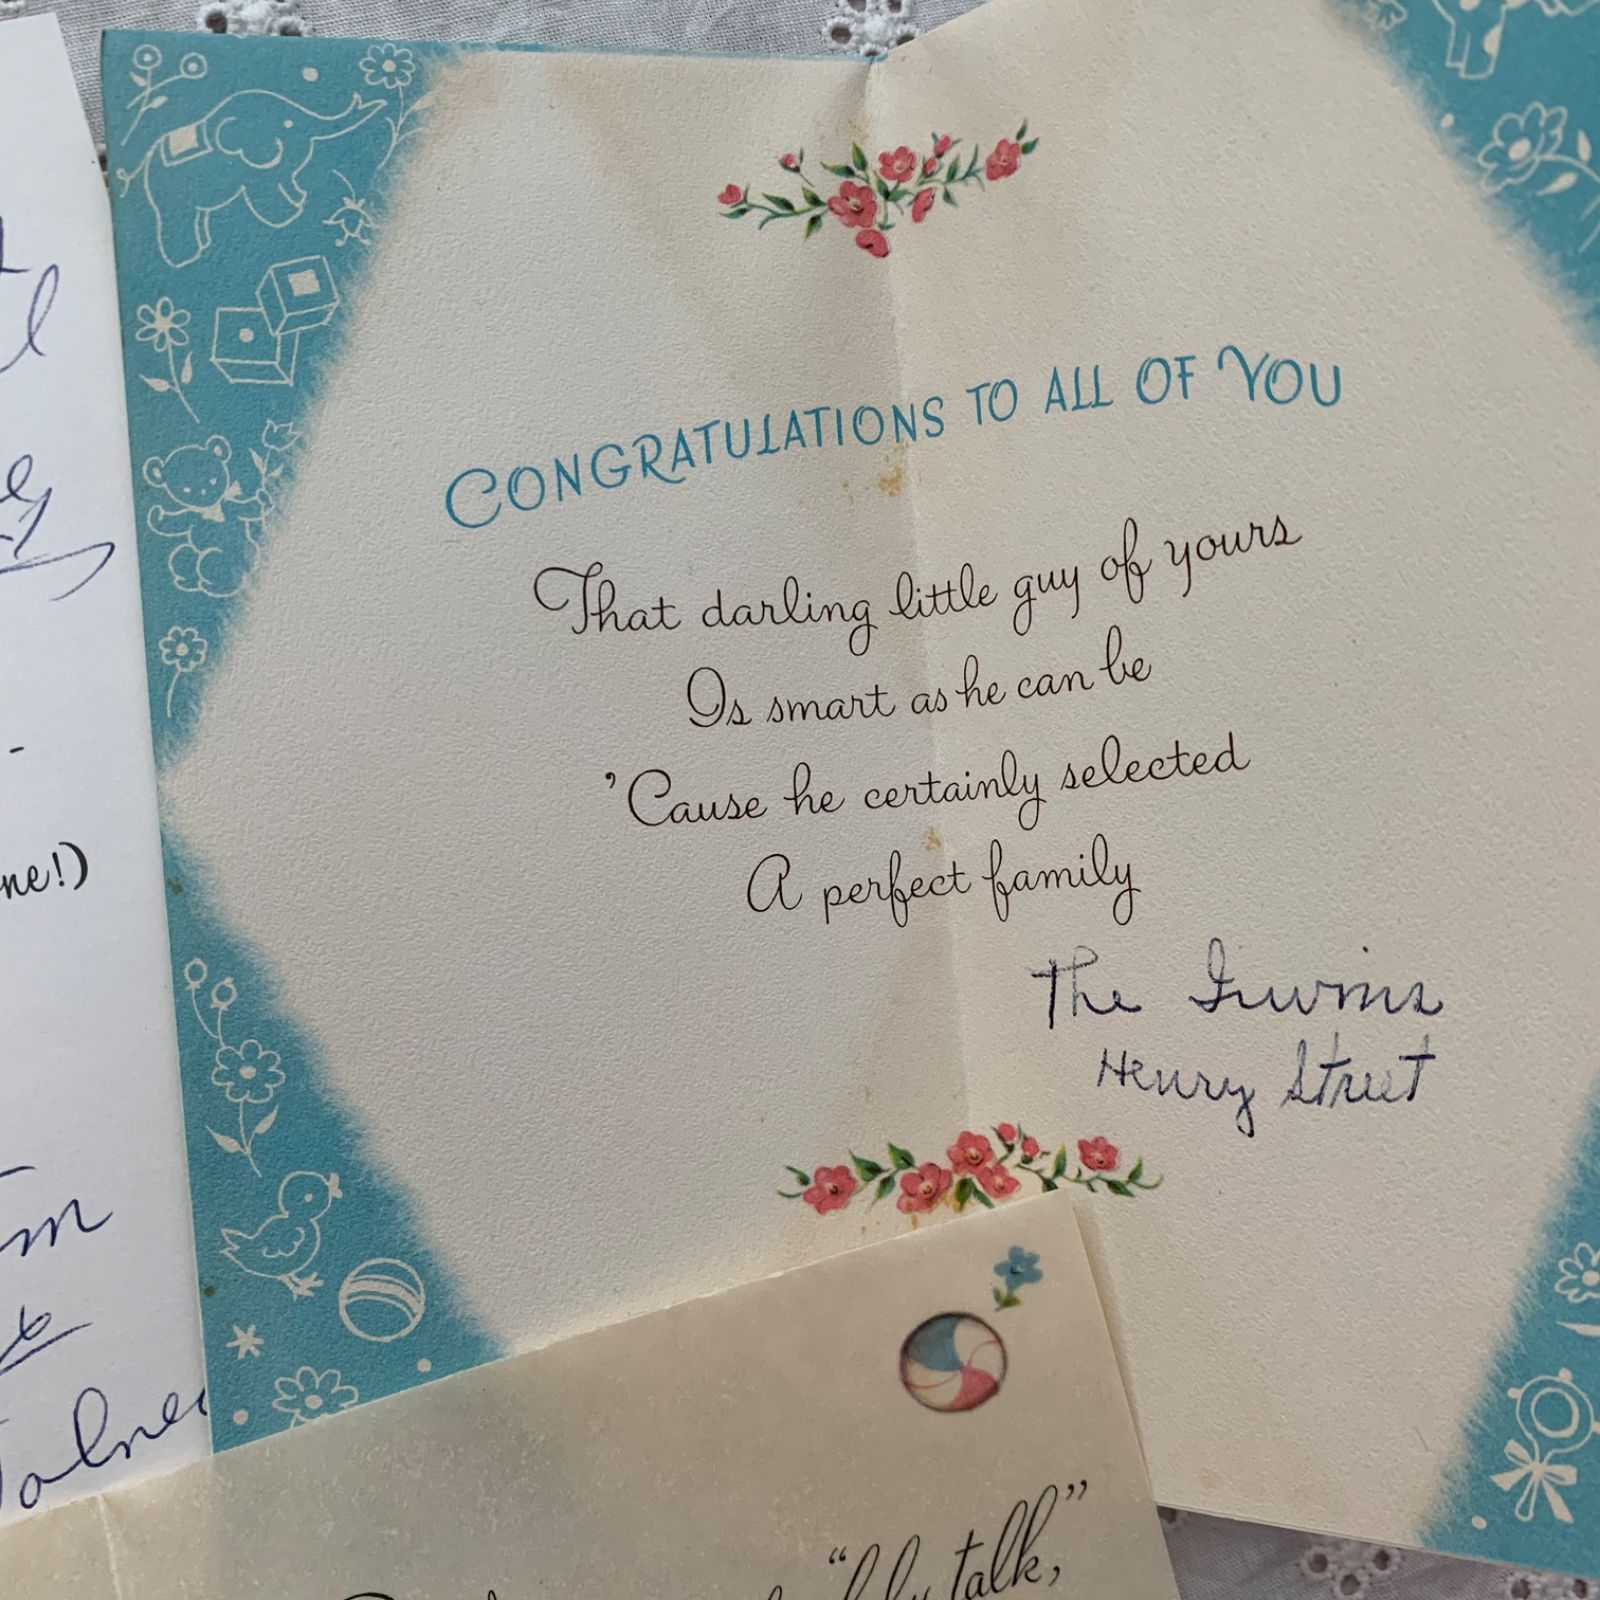 CONGRATULATIONS TO ALL OF YOU
That darling little guy of yours
Is smart as he can be
'Cause he certainly selected
A perfect family
The Irwins
Henry Street
ne!)
talk,"